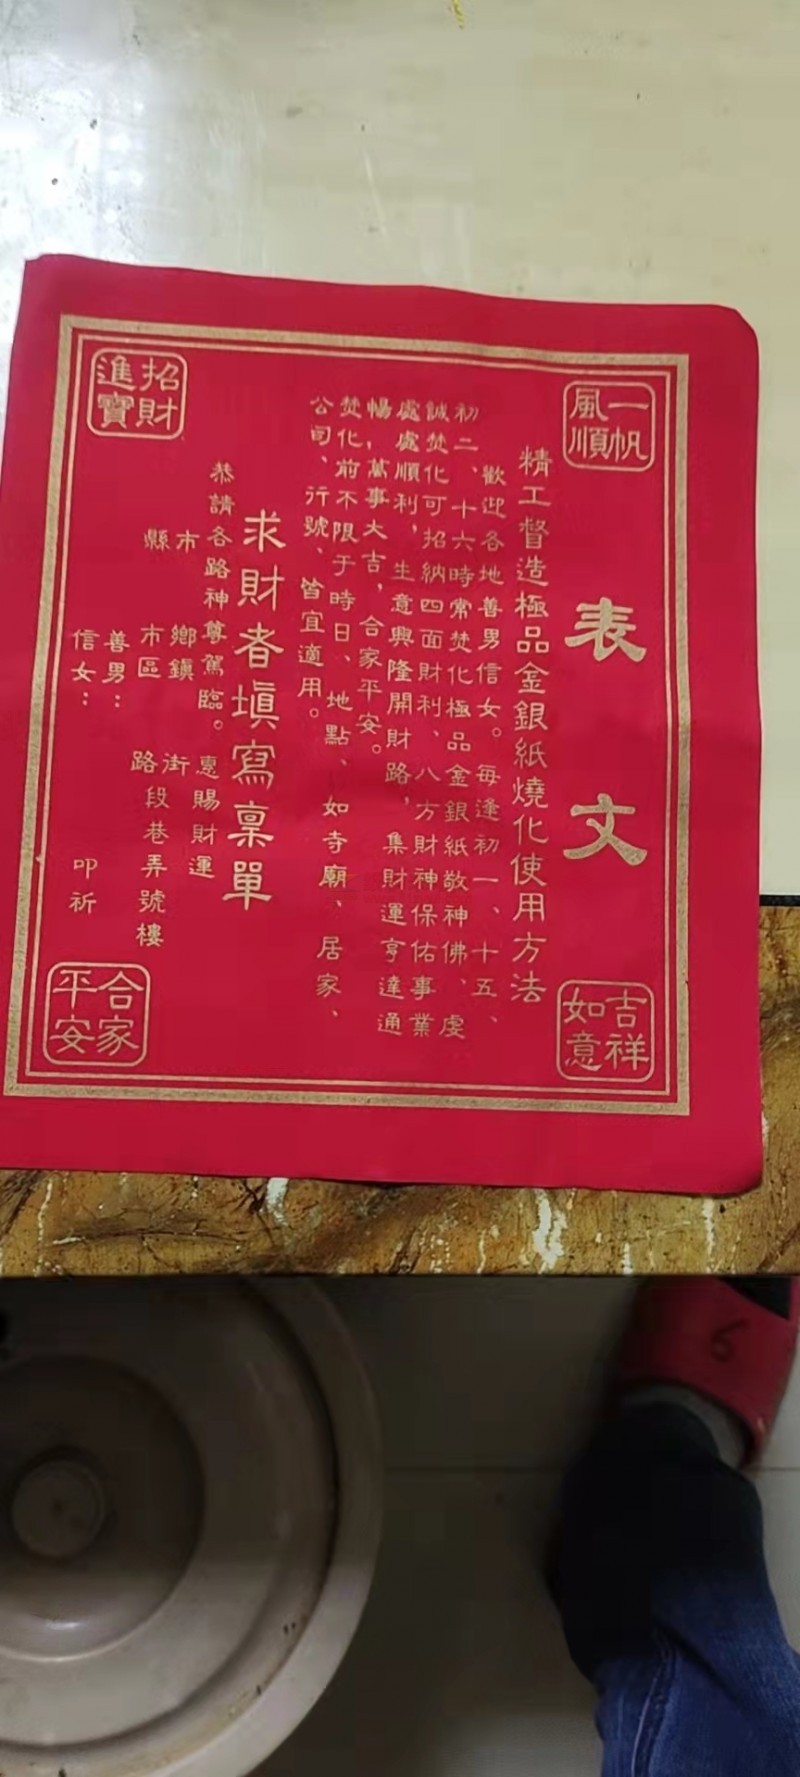 表文
一帆
風順
吉祥
如意
精工督造極品金銀紙燒化使用方法
歡迎各地善男信女。每逢初一、十五、
初二、十六時常焚化極品金銀紙敬神佛、虔
誠焚化可招納四面財利、八方財神保佑事業
處處順利，生意興隆開財路，集財運亨達通
暢，萬事大吉，合家平安。
焚化前不限于時日、地點、如寺廟、居家、
公司、行號、皆宜適用。
求財者填寫稟單
恭請各路神尊駕臨。惠賜財運
市 鄉鎮 街
縣 市區 路段巷弄號樓
善男：
信女： 叩祈
招財
進寶
合家
平安
6